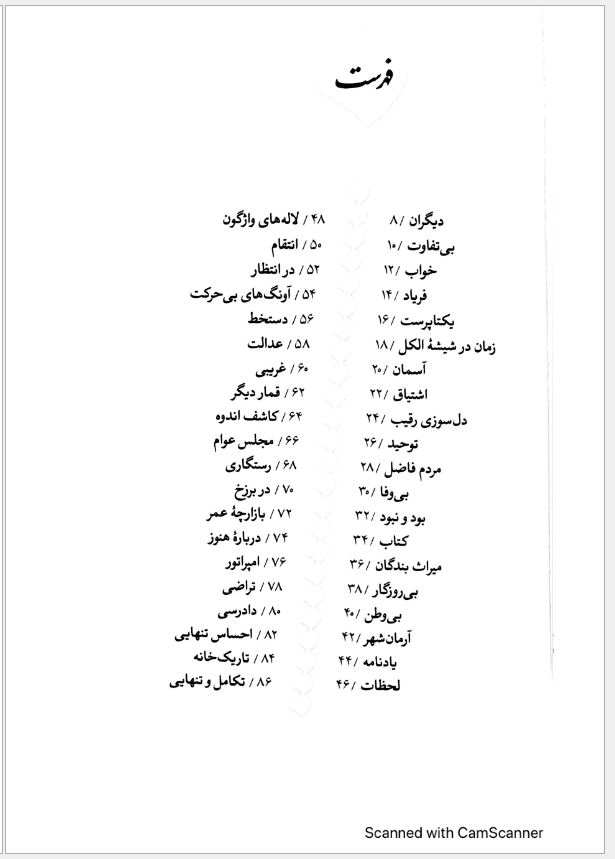 فهرست
دیگران / ۸
بی‌تفاوت / ۱۰
خواب / ۱۲
فریاد / ۱۴
یکتاپرست / ۱۶
زمان در شیشهٔ الکل / ۱۸
آسمان / ۲۰
اشتیاق / ۲۲
دل‌سوزی رقیب / ۲۴
توحید / ۲۶
مردم فاضل / ۲۸
بی‌وفا / ۳۰
بود و نبود / ۳۲
کتاب / ۳۴
میراث بندگان / ۳۶
بی‌روزگار / ۳۸
بی‌وطن / ۴۰
آرمان‌شهر / ۴۲
یادنامه / ۴۴
لحظات / ۴۶
۴۸ / لاله‌های واژگون
۵۰ / انتقام
۵۲ / در انتظار
۵۴ / آونگ‌های بی‌حرکت
۵۶ / دستخط
۵۸ / عدالت
۶۰ / غریبی
۶۲ / قمار دیگر
۶۴ / کاشف اندوه
۶۶ / مجلس عوام
۶۸ / رستگاری
۷۰ / در برزخ
۷۲ / بازارچهٔ عمر
۷۴ / دربارهٔ هنوز
۷۶ / امپراتور
۷۸ / تراضی
۸۰ / دادرسی
۸۲ / احساس تنهایی
۸۴ / تاریک‌خانه
۸۶ / تکامل و تنهایی
Scanned with CamScanner